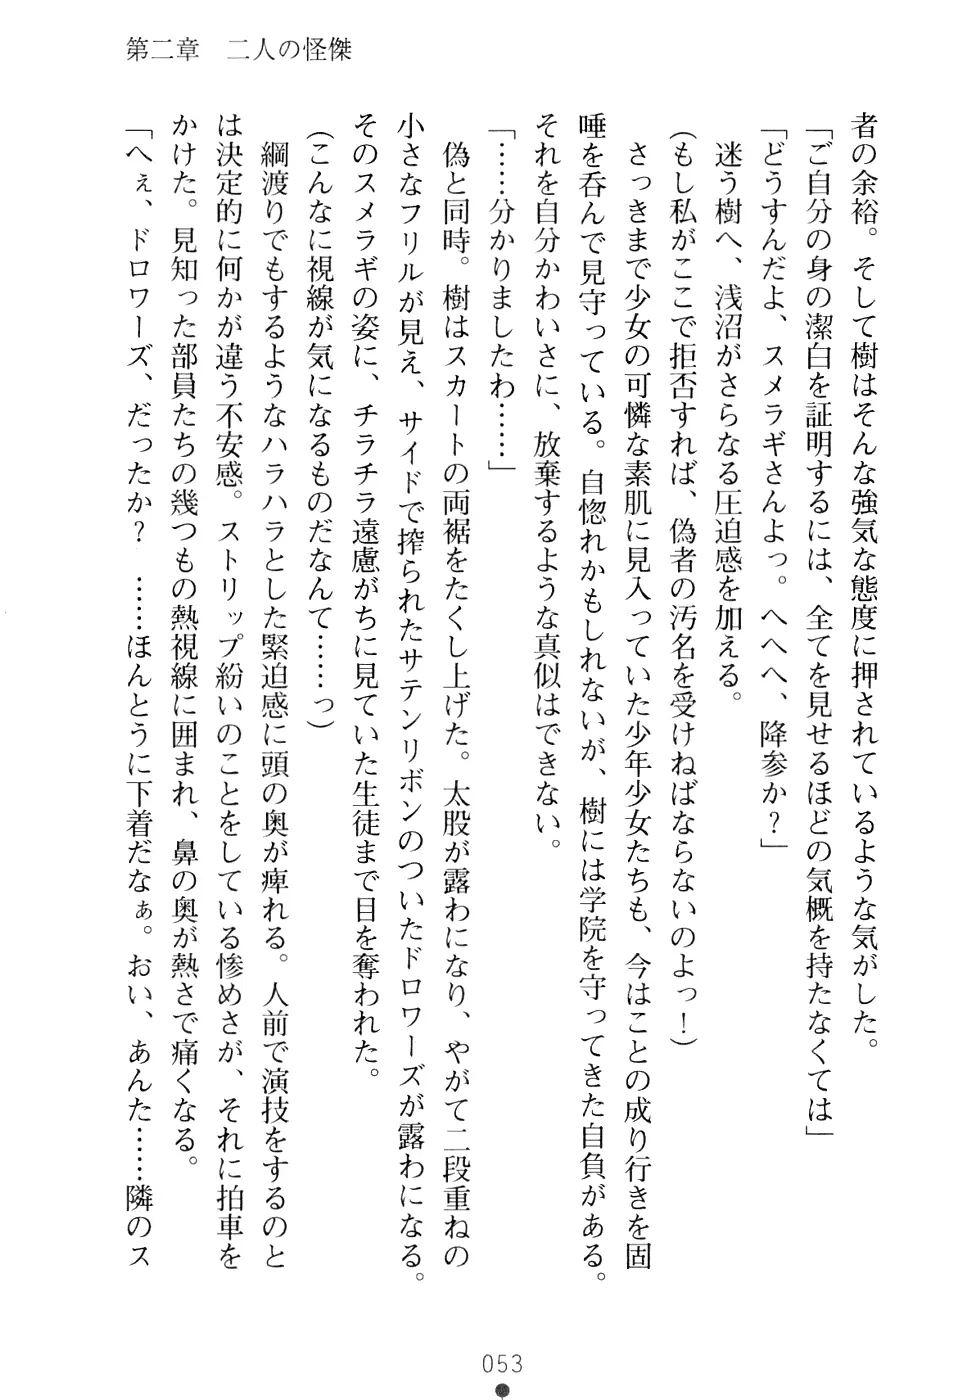 第二章　二人の怪傑
者の余裕。そして樹はそんな強気な態度に押されているような気がした。
「ご自分の身の潔白を証明するには、全てを見せるほどの気概を持たなくては」
「どうすんだよ、スメラギさんよっ。へへへ、降参か？」
　迷う樹へ、浅沼がさらなる圧迫感を加える。
（もし私がここで拒否すれば、偽者の汚名を受けねばならないのよっ！）
　さっきまで少女の可憐な素肌に見入っていた少年少女たちも、今はことの成り行きを固
唾を呑んで見守っている。自惚れかもしれないが、樹には学院を守ってきた自負がある。
それを自分かわいさに、放棄するような真似はできない。
「……分かりましたわ……」
　偽と同時。樹はスカートの両裾をたくし上げた。太股が露わになり、やがて二段重ねの
小さなフリルが見え、サイドで搾られたサテンリボンのついたドロワーズが露わになる。
そのスメラギの姿に、チラチラ遠慮がちに見ていた生徒まで目を奪われた。
（こんなに視線が気になるものだなんて……っ）
　綱渡りでもするようなハラハラとした緊迫感に頭の奥が痺れる。人前で演技をするのと
は決定的に何かが違う不安感。ストリップ紛いのことをしている惨めさが、それに拍車を
かけた。見知った部員たちの幾つもの熱視線に囲まれ、鼻の奥が熱さで痛くなる。
「へぇ、ドロワーズ、だったか？　……ほんとうに下着だなぁ。おい、あんた……隣のス
053